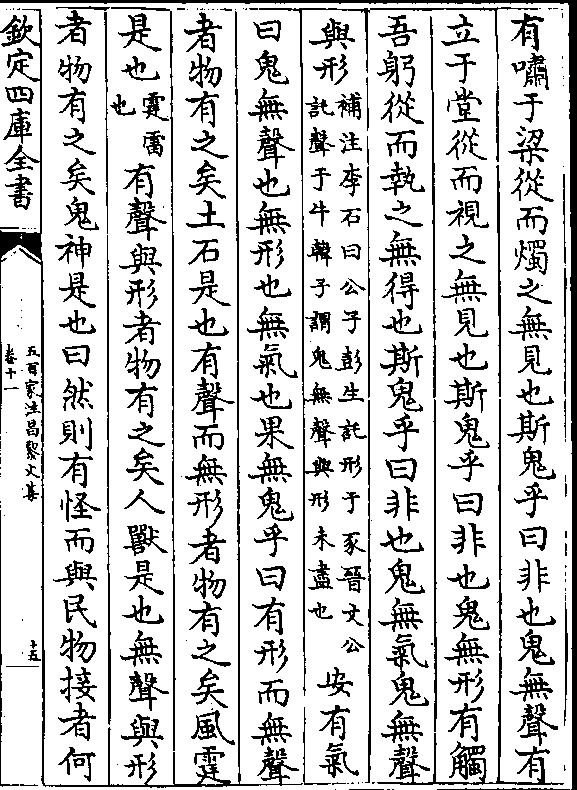 有嘯于梁從而燭之無見也斯鬼乎曰非也鬼無聲有
立于堂從而視之無見也斯鬼乎曰非也鬼無形有觸
吾躬從而執之無得也斯鬼乎曰非也鬼無氣鬼無聲
與形補注李石曰公子彭生託形于豕晉文公託聲于牛韓子謂鬼無聲與形未盡也安有氣
曰鬼無聲也無形也無氣也果無鬼乎曰有形而無聲
者物有之矣土石是也有聲而無形者物有之矣風霆
是也霆雷也有聲與形者物有之矣人獸是也無聲與形
者物有之矣鬼神是也曰然則有怪而與民物接者何
欽定四庫全書
五百家注昌黎文集
卷十一
十五